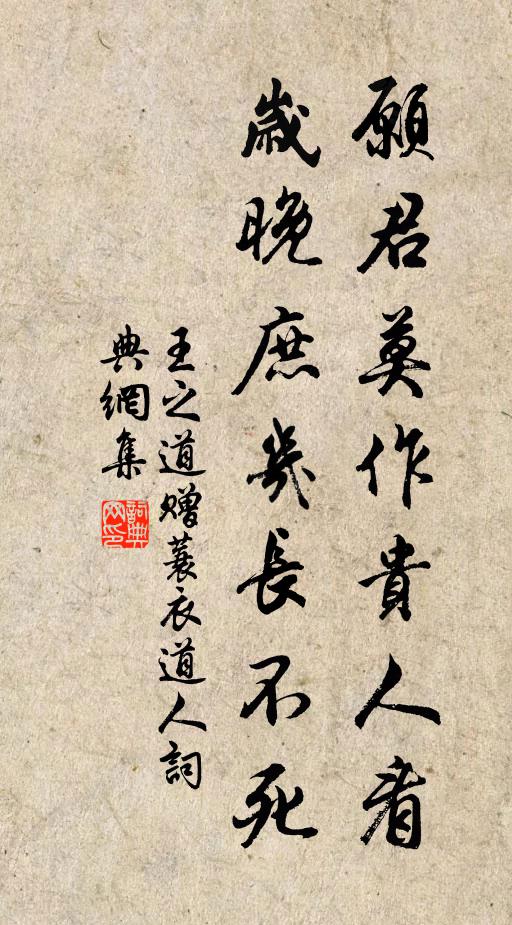 願君莫作貴人看
歲晚庶幾長不死
王之道贈蓑衣道人詞
典網集
詞典網印